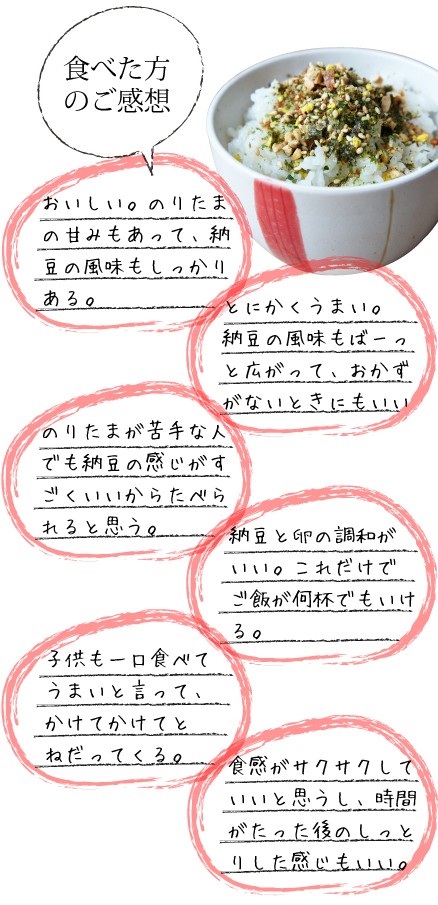 食べた方
のご感想
おいしい。のりたま
の甘みもあって、納
豆の風味もしっかり
ある。
とにかくうまい。
納豆の風味もばーっ
と広がって、おかず
がないときにもいい
のりたまが苦手な人
でも納豆の感じがす
ごくいいからたべら
れると思う。
納豆と卵の調和が
いい。これだけで
ご飯が何杯でもいけ
る。
子供も一口食べて
うまいと言って、
かけてかけてと
ねだってくる。
食感がサクサクして
いいと思うし、時間
がたった後のしっと
りした感じもいい。